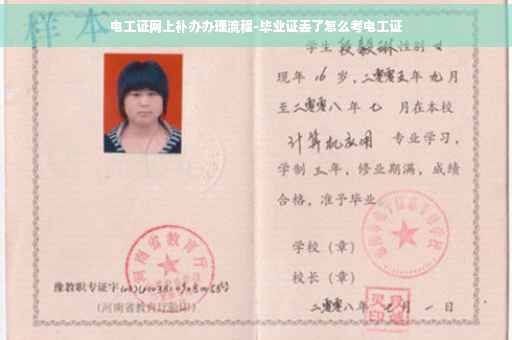 样本
电工证网上补办办理流程-毕业证丢了怎么考电工证
学生段毅琳性别女
现年16岁，二零零五年九月
至二零零八年七月在本校
计算机应用 专业学习，
学制三年，修业期满，成绩
合格，准予毕业
学校（章）
校长（章）
二零零八年 月一日
河南省教育厅
豫教职专证字
（河南省教育厅验印）